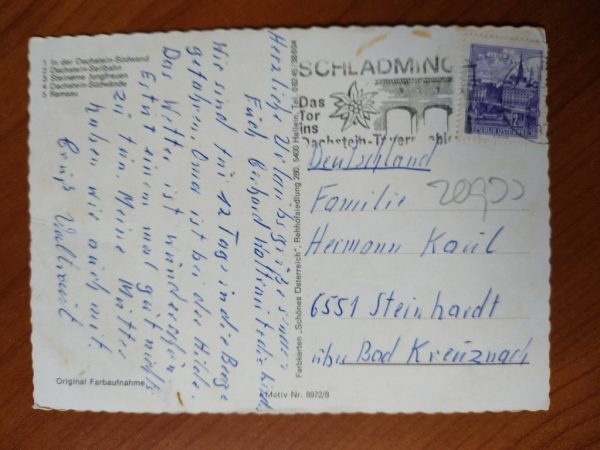 1 In der Dachstein-Südwand
2 Dachstein-Seilbahn
3 Steinerne Jungfrauen
4 Dachstein-Südwände
5 Ramsau
Herzliche Urlaubsgrüße senden
Euch Gerhard Waltraut + die Kinder
Wir sind für 12 Tage in die Berge
gefahren. Oma ist bei der Hilde.
Das Wetter ist wunderschön
Es tut einem mal gut nichts
zu tun. Meine Mutter
haben wir auch mit
Gruß Waltraut
Original Farbaufnahme
Farbkarten „Schönes Österreich", Rehhofsiedlung 280, 5400 Hallein, Tel.
Motiv Nr. 8972/8
SCHLADMING
Das
Tor
ins
Dachstein-Tauerngebiet
REPUBLIK ÖSTERREICH
Deutschland
Familie
Hermann Kaul
6551 Steinhardt
über Bad Kreuznach